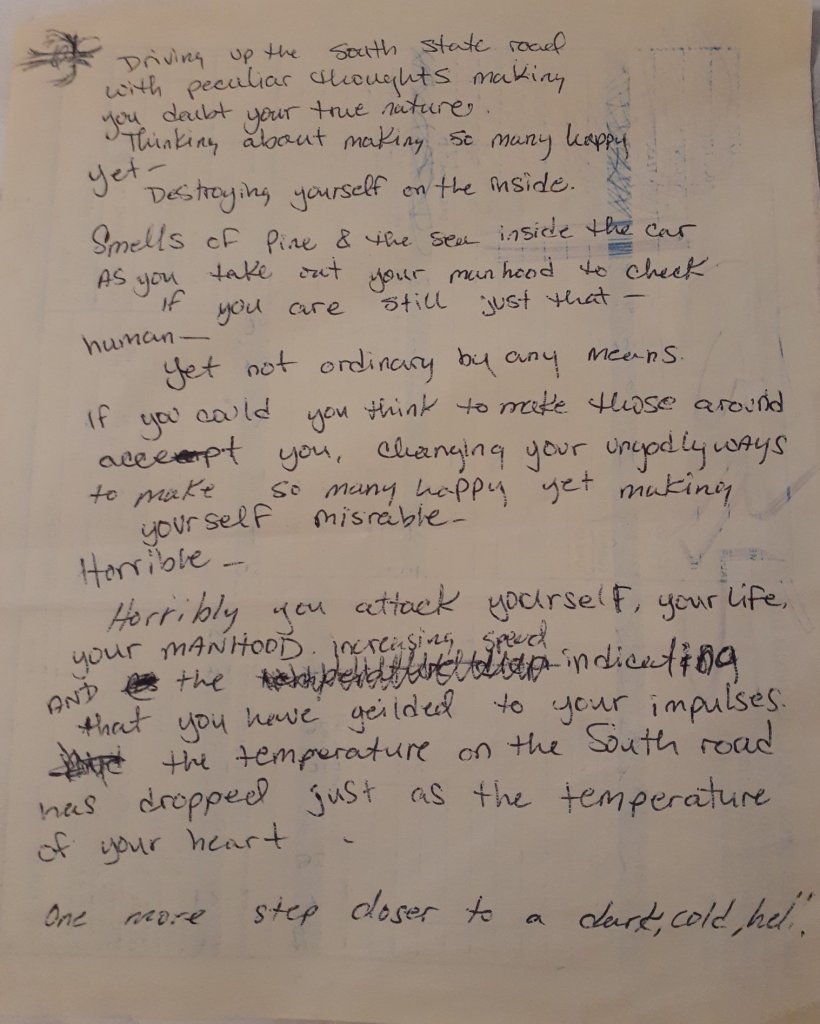 Driving up the South state road
with peculiar thoughts making
you doubt your true nature.
Thinking about making so many happy
yet-
Destroying yourself on the inside.
Smells of Pine & the sea inside the car
As you take out your manhood to check
if you are still just that -
human-
Yet not ordinary by any means.
If you could you think to make those around
accept you, changing your ungodly ways
to make so many happy yet making
yourself misrable-
Horrible -
Horribly you attack yourself, your life,
your MANHOOD. increasing speed
AND the indicating
that you have yeilded to your impulses.
the temperature on the South road
has dropped just as the temperature
of your heart -
One more step closer to a dark, cold,